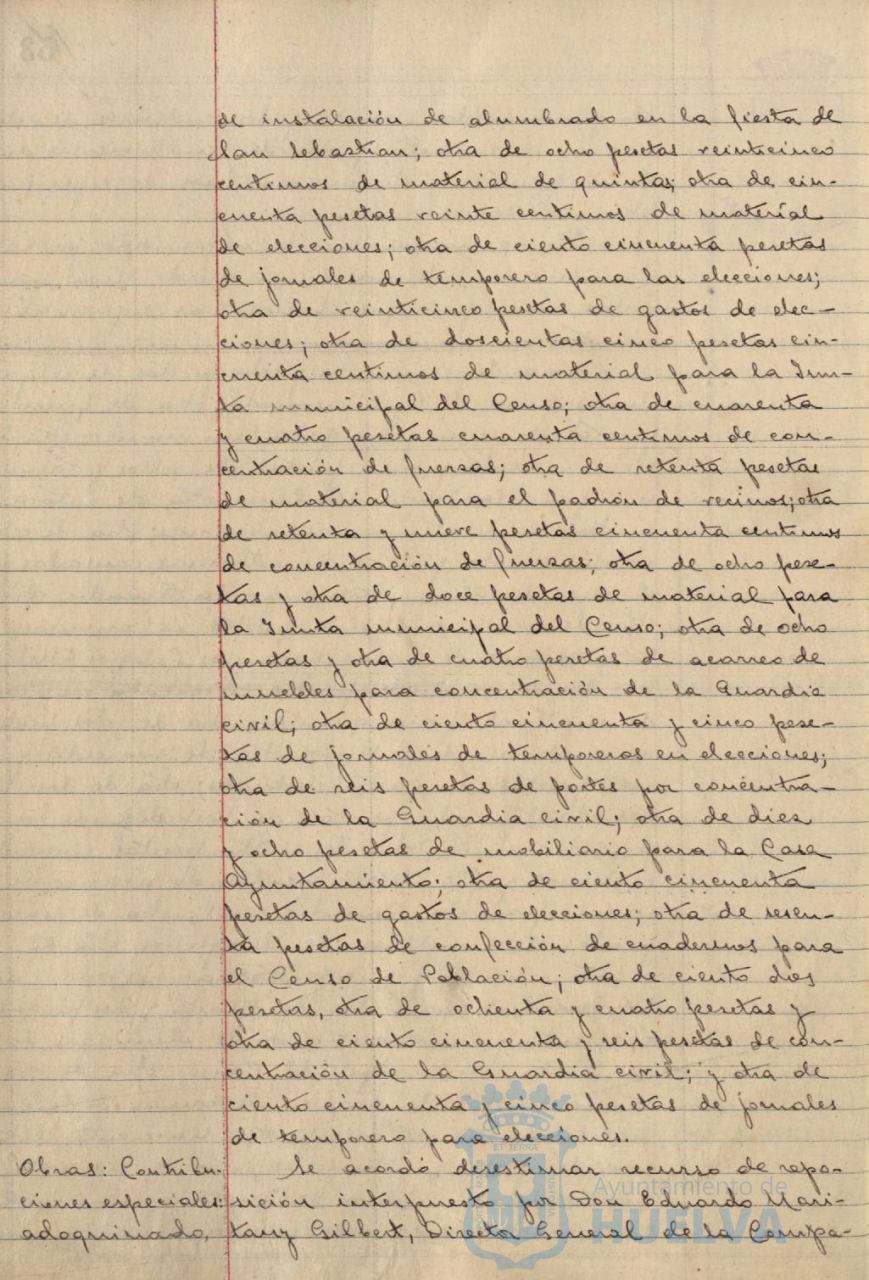 de instalación de alumbrado en la fiesta de
San Sebastian; otra de ocho pesetas veinticinco
centimos de material de quintas; otra de cin-
cuenta pesetas veinte centimos de material
de elecciones; otra de ciento cincuenta pesetas
de jornales de temporero para las elecciones;
otra de veinticinco pesetas de gastos de elec-
ciones; otra de doscientas cinco pesetas cin-
cuenta centimos de material para la Jun-
ta municipal del Censo; otra de cuarenta
y cuatro pesetas cuarenta centimos de con-
centración de fuerzas; otra de setenta pesetas
de material para el padrón de vecinos; otra
de setenta y nueve pesetas cincuenta centimos
de concentración de fuerzas; otra de ocho pese-
tas y otra de doce pesetas de material para
la Junta municipal del Censo; otra de ocho
pesetas y otra de cuatro pesetas de acarreo de
muebles para concentración de la Guardia
civil; otra de ciento cincuenta y cinco pese-
tas de jornales de temporeros en elecciones;
otra de seis pesetas de portes por concentra-
ción de la Guardia civil; otra de diez
y ocho pesetas de mobiliario para la Casa
Ayuntamiento; otra de ciento cincuenta
pesetas de gastos de elecciones; otra de sesen-
ta pesetas de confección de cuadernos para
el Censo de Población; otra de ciento dos
pesetas, otra de ochenta y cuatro pesetas y
otra de ciento cincuenta y seis pesetas de con-
centración de la Guardia civil; y otra de
ciento cincuenta y cinco pesetas de jornales
de temporero para elecciones.
Obras: Contribu-
ciones especiales:
adoquinado,
Se acordó desestimar recurso de repo-
sición interpuesto por Don Eduardo Mari-
tany Gilbert, Director General de la Compa-
Ayuntamiento de
HUELVA